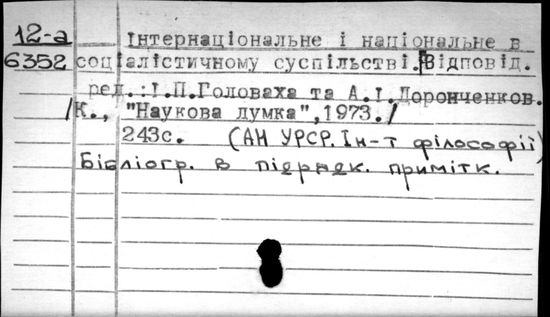 12-а Інтернаціональне і національне в
6352 соціалістичному суспільстві. /Відповід.
ред.:І.П.Головаха та А.І.Доронченков.
/К., "Наукова думка",1973./
243с. (АН УРСР. Ін-т філософії)
Бібліогр. в підряд. примітк.